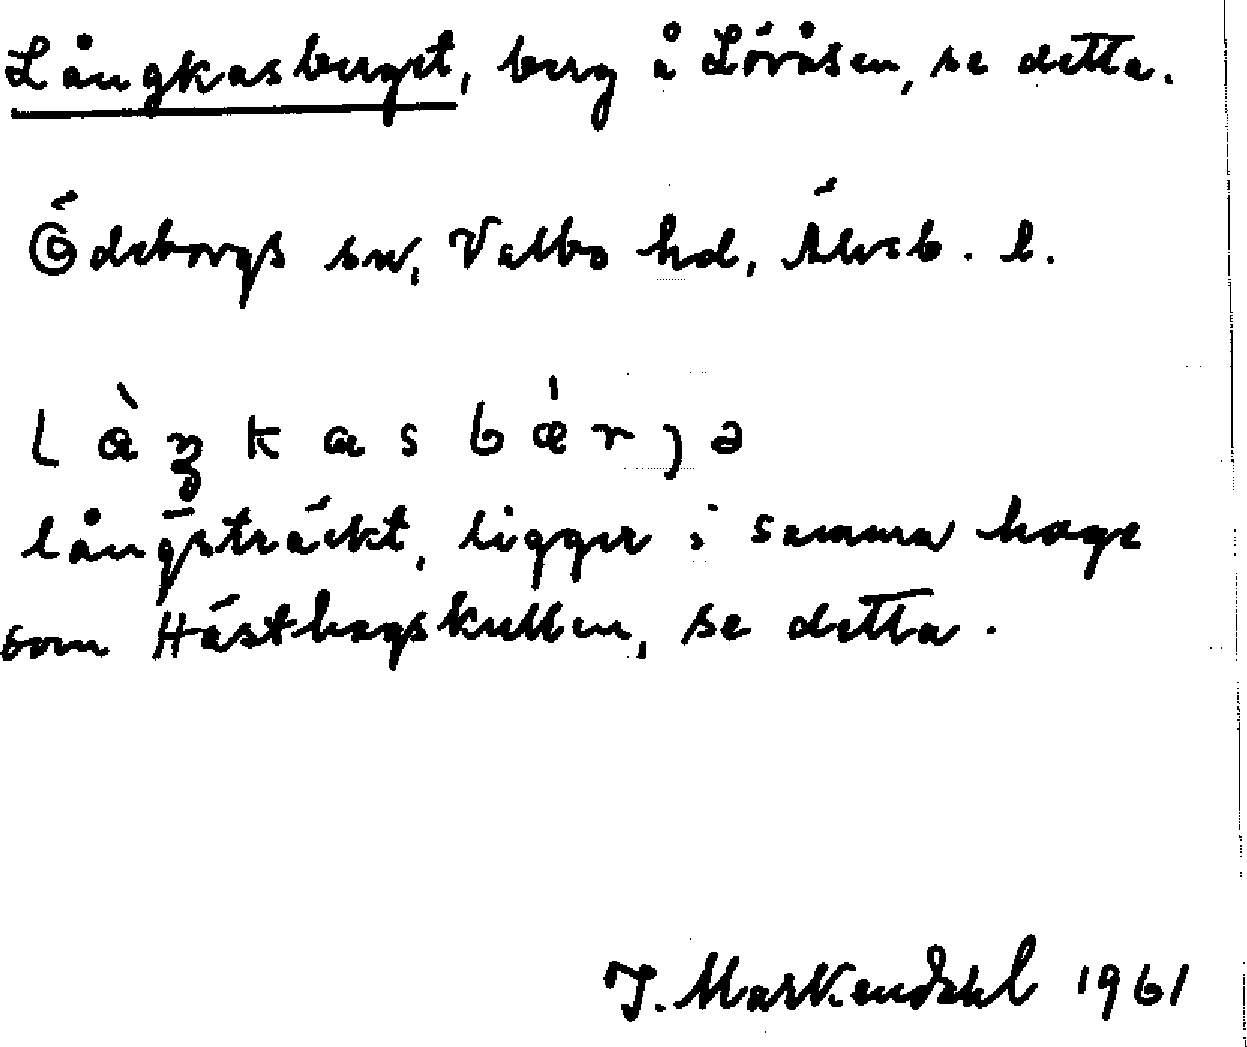 Långkasberget, berg å Lövåsen, se detta.
Ödeborgs sn, Valbo hd, Älvsb. l.
l à̊ ŋ k a s b æ̀ r j ə
långsträckt, ligger i samma hage
som Hästhagskullen, se detta.
J. Markendahl 1961